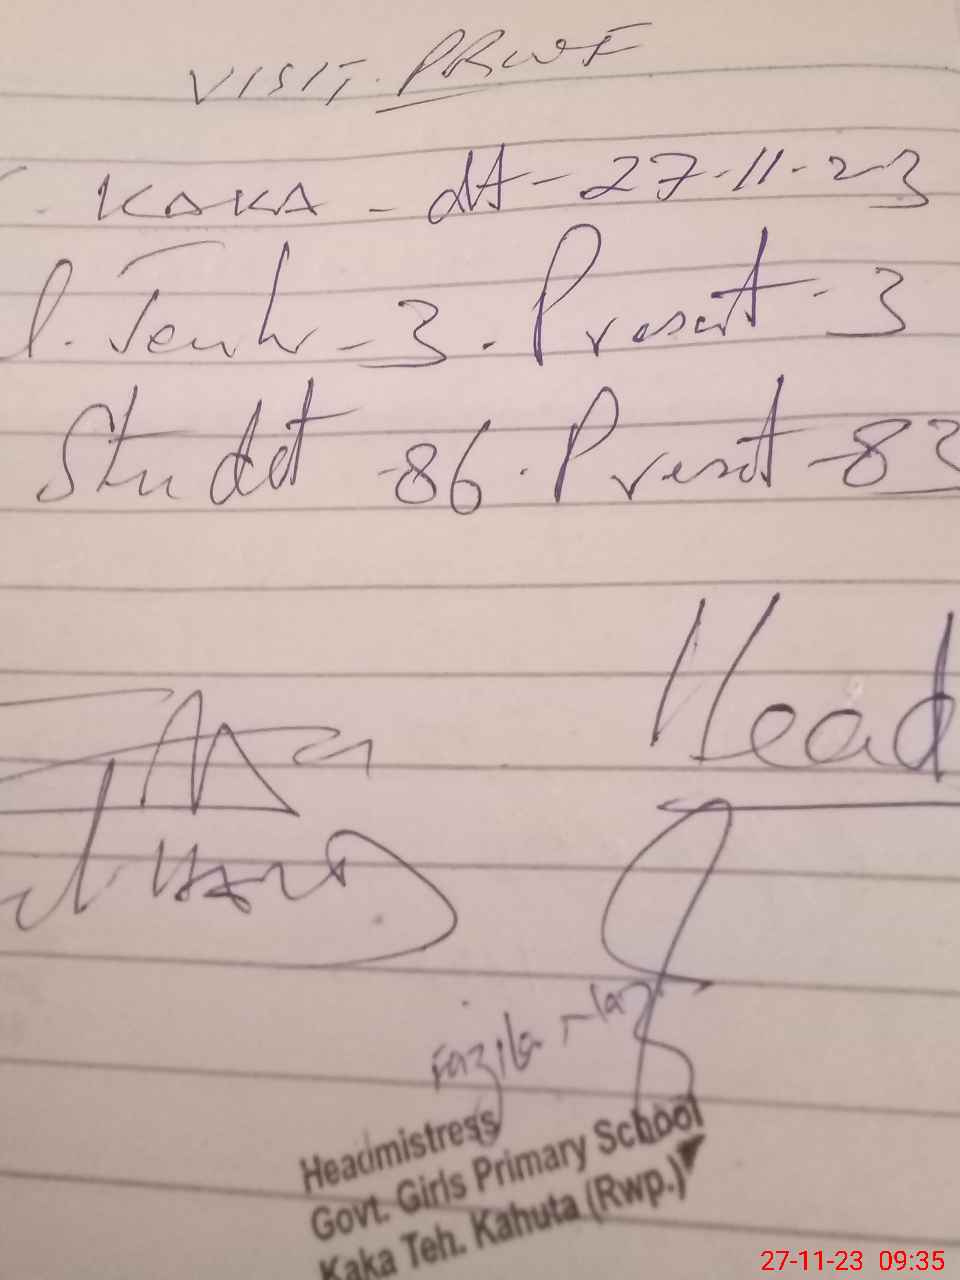 VISIT PROOF
KAKA - dt - 27-11-23
- 3 . Present - 3
Studdt - 86 . Present - 83
Head
Fazila
Headmistress
Govt. Girls Primary School
Kaka Teh. Kahuta (Rwp.)
27-11-23 09:35